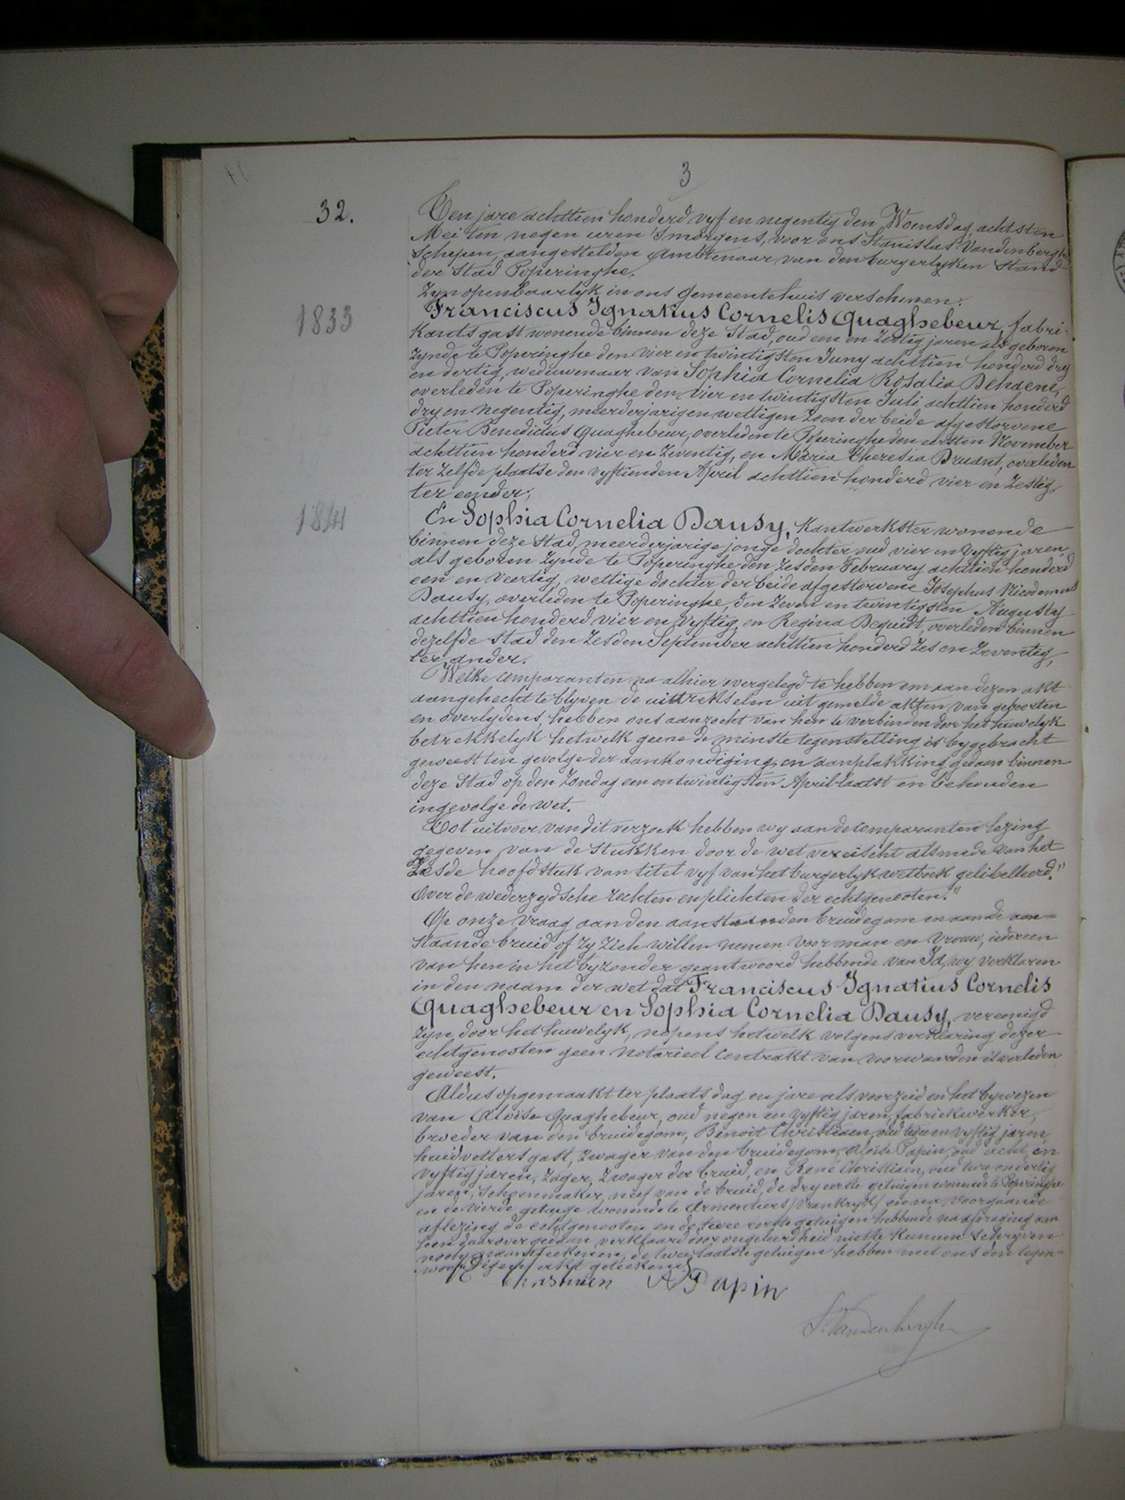 3
32.
Ten jare achttien honderd vyf en negentig den Woensdag achtsten
Mei ten negen uren 's morgens, voor ons Stanislas Vandenberghe
Schepen, aangestelden Ambtenaar van den burgerlyken Stand
der Stad Poperinghe,
Zyn openbaarlyk in ons gemeentehuis verschenen:
1833
Franciscus Ignatius Cornelis Quaghebeur, fabri-
kantsgast wonende binnen deze Stad, oud een en zestig jaren als geboren
zynde te Poperinghe den vier en twintigsten Juny achttien honderd dry
en dertig, weduwenaar van Sophia Cornelia Rosalia Dehaene,
overleden te Poperinghe den vier en twintigsten Juli achttien honderd
dry en negentig, meerderjarigen wettigen zoon der beide afgestorvene
Pieter Benedictus Quaghebeur, overleden te Poperinghe den eersten November
achttien honderd vier en zeventig, en Maria Theresia Bruant, overleden
ter zelfde plaatse den vyftienden April achttien honderd vier en zestig,
ter eender;
1841
En Sophia Cornelia Dausy, kantwerkster wonende
binnen deze Stad, meerderjarige jonge dochter oud vier en vyftig jaren
als geboren zynde te Poperinghe den zesden February achttien honderd
een en veertig, wettige dochter der beide afgestorvene Josephus Nicodemus
Dausy, overleden te Poperinghe, den zeven en twintigsten Augusty
achttien honderd vier en vyftig, en Regina Dequidt, overleden binnen
dezelfde Stad den zesden September achttien honderd zes en zeventig,
ter ander.
Welke comparanten na alhier vergelegd te hebben om aan dezen akt
aangehecht te blyven de uittrekselen uit gemelde akten van geboorten
en overlydens, hebben ons aanzocht van hen te verbinden door het huwelyk
betrekkelyk hetwelk geene de minste tegenstelling is bygebracht
geweest ten gevolge der aankondiging en aanplakking gedaan binnen
deze Stad op den Zondag een en twintigsten April laatst en behouden
ingevolge de wet.
Tot uitvoer van dit verzoek hebben wy aan de comparanten lezing
gegeven van de stukken door de wet vereischt alsmede van het
Zesde hoofdstuk van titel vyf van het burgerlyk wetboek gelibelleerd"
Over de wederzydsche rechten en plichten der echtgenooten."
Op onze vraag aan den aanstaanden bruidegom en aan de aan-
staande bruid of zy zich willen nemen voor man en vrouw, iedereen
van hen in het byzonder geantwoord hebbende van Ja, wy verklaren
in den naam der wet dat Franciscus Ignatius Cornelis
Quaghebeur en Sophia Cornelia Dausy, vereenigd
zyn door het huwelyk, nopens hetwelk volgens verklaring dezer
echtgenooten geen notarieel contrakt van voorwaarden is verleden
geweest.
Aldus opgemaakt ter plaats dag en jare als voorzeid en het bywezen
van Aloise Quaghebeur, oud negen en vyftig jaren, fabriekwerker,
broeder van den bruidegom, Benoit Christiaen, oud en vyftig jaren,
huidvettersgast, zwager van den bruidegom, Papin, oud acht en
vyftig jaren, zager, zwager der bruid, en René Christiaen, oud twee en dertig
jaren, schoenmaker, neef van de bruid, de dry eerste getuigen wonende te Poperinghe
en de vierde getuige wonende te Armentiers (Vrankryk) en na voorgaande
aflezing de echtgenooten en de twee eerste getuigen hebbende na afvraging aan
hen daarover gedaan, verklaard door ongeleerdheid niet te kunnen schryven
noch naamteekenen, de twee laatste getuigen hebben met ons den tegen-
woordigen akt geteekend.
A Papin
S. Vandenberghe